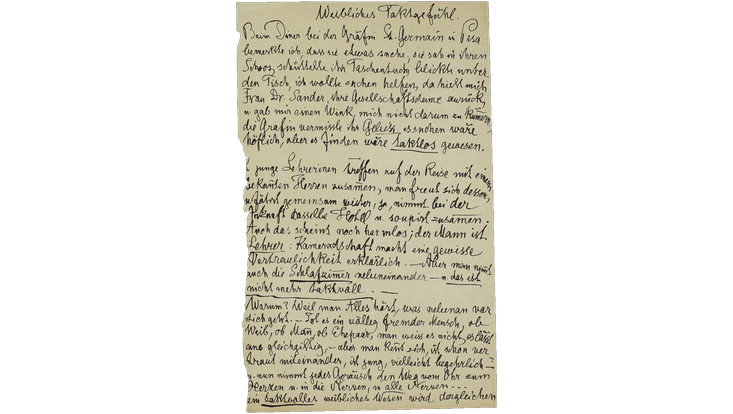 Weibliches Taktgefühl.
Beim Diner bei der Gräfin St. Germain in Pisa
bemerkte ich, dass sie etwas suche, sie sah in ihren
Schoos, schüttelte ihr Taschentuch, blickte unter
den Tisch, ich wollte suchen helfen, da hielt mich
Frau Dr. Sander, ihre Gesellschaftsdame zurück,
u. gab mir einen Wink, mich nicht darum zu kümern,
die Gräfin vermisste ihr es suchen wäre
höflich, aber es finden wäre taktlos gewesen.
junge Lehrerinen treffen auf der Reise mit einem
Herren zusamen, man freut sich dessen,
fährt gemeinsam weiter, ja, nimmt bei der
Ankunft dasselbe Hotel u. soupirt zusamen.
Auch das scheint noch harmlos; der Mann ist
Lehrer: Kameradschaft macht eine gewisse
Vertraulichkeit erklärlich. — Aber man nimt
auch die Schlafzimer nebeneinander — u. das ist
nicht mehr taktvoll. —
Warum? Weil man Alles hört, was nebenan vor
sich geht. — Ist es ein völlig fremder Mensch, ob
Weib, ob Man, ob Ehepaar, man weiss es nicht, es lässt
uns gleichgiltig, — aber man kent sich, ist schon ver
traut miteinander, ist jung, vielleicht begehrlich —
u. nun nimmt jedes Geräusch den Weg vom Ohr zum
Herzen u. in die Nerven, in alle Nerven...
ein taktvolles weibliches Wesen wird dergleichen